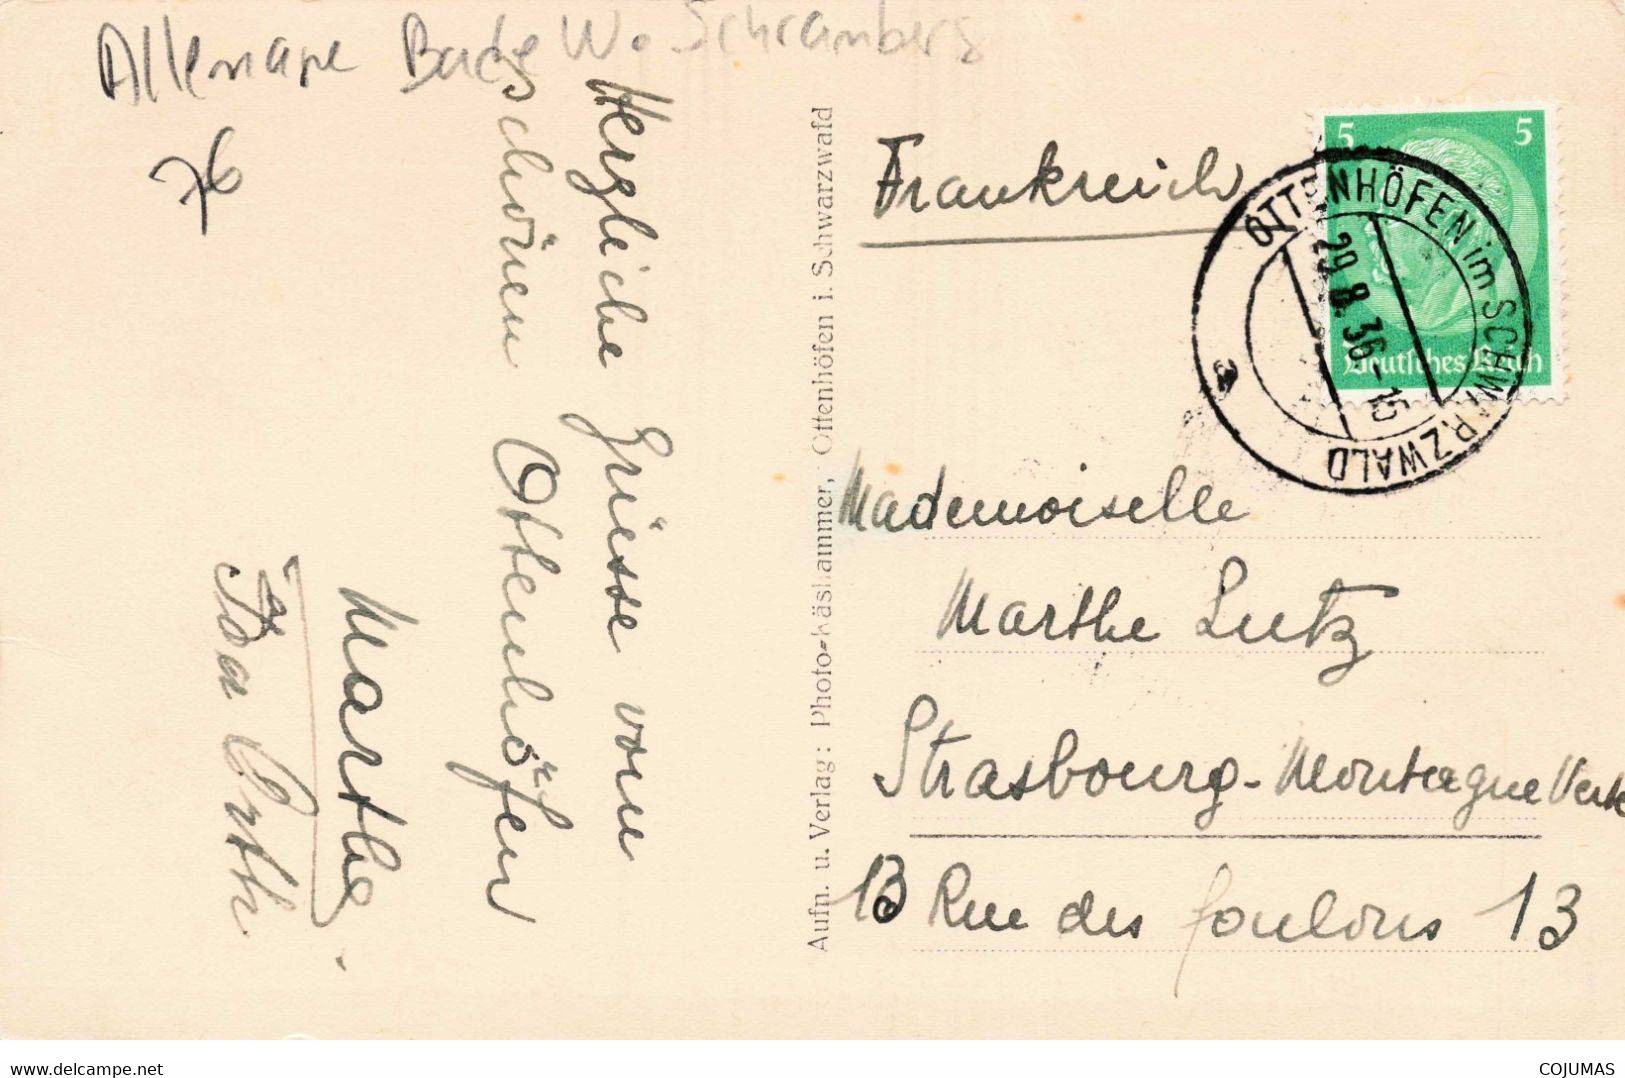 Allemagne Bade W. Schramberg
76
Herzliche Grüsse vom
schönen Ottenhöfen
Marthe.
Ida Orth
Aufn. u. Verlag: Photo-Käshammer, Ottenhöfen i. Schwarzwald
Frankreich
5 5
Deutsches Reich
OTTENHÖFEN im SCHWARZWALD
29.8.36-15
a
Mademoiselle
Marthe Lutz
Strasbourg-Montagne Verte
13 Rue des foulons 13
www.delcampe.net
COJUMAS